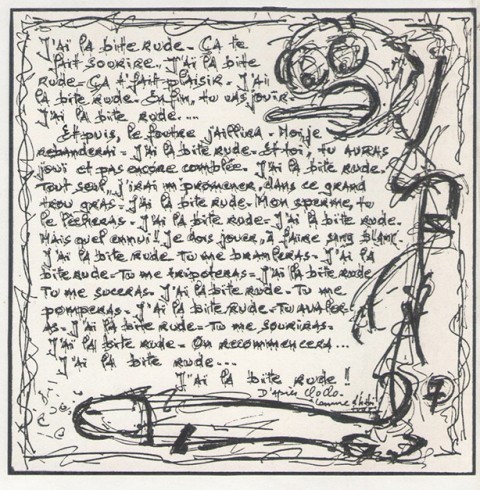 J'ai la bite rude - Ça te
fait sourire. J'ai la bite
rude - Ça t'fait plaisir. J'ai
la bite rude. Enfin, tu vas jouir.
J'ai la bite rude....
Et puis, le foutre jaillira - Moi je
rebanderai - J'ai la bite rude - Et toi, tu auras
joui et pas encore comblée. J'ai la bite rude.
Tout seul, j'irai m'promener, dans ce grand
trou gras - J'ai la bite rude - Mon sperme, tu
le lècheras - J'ai la bite rude - J'ai la bite rude.
Mais quel ennui! Je dois jouer, à faire sang blanc.
J'ai la bite rude - Tu me branleras - J'ai la
bite rude - Tu me tripoteras - J'ai la bite rude
Tu me suceras - J'ai la bite rude - Tu me
pomperas - J'ai la bite rude - Tu avaler-
as - J'ai la bite rude - Tu me souriras -
J'ai la bite rude - On recommencera...
J'ai la bite rude...
J'ai la bite rude !
D'après Cloclo.
7